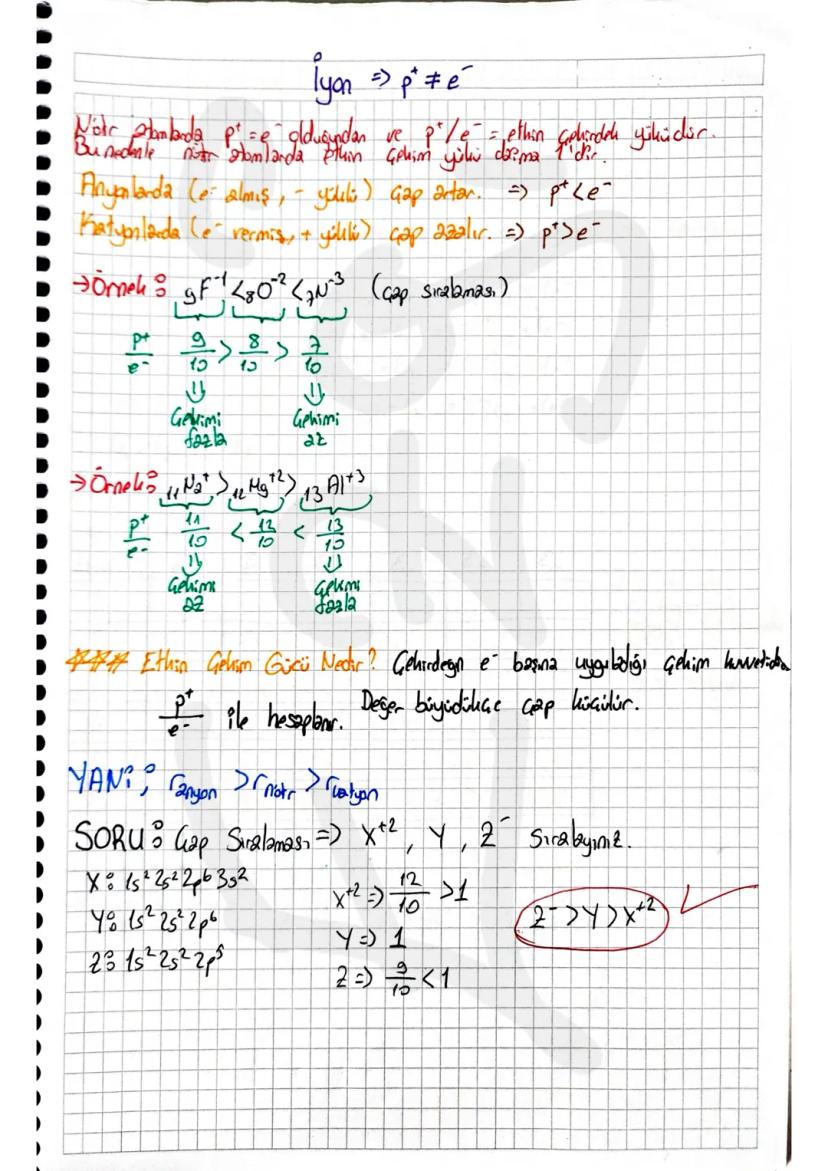 İyon => p⁺ ≠ e⁻
Nötr atomlarda p⁺ = e⁻ olduğundan ve p⁺/e⁻ = etkin çekirdek yüküdür.
Bu nedenle nötr atomlarda etkin çekim yükü daima 1'dir.
Anyonlarda (e⁻ almış, - yüklü) çap artar. => p⁺<e⁻
Katyonlarda (e⁻ vermiş, + yüklü) çap azalır. => p⁺>e⁻
→Örnek: ₉F⁻¹ < ₈O⁻² < ₇N⁻³ (çap sıralaması)
p⁺/e⁻ 9/10 > 8/10 > 7/10
Çekimi fazla Çekimi az
→Örnek: ₁₁Na⁺ > ₁₂Mg⁺² > ₁₃Al⁺³
p⁺/e⁻ 11/10 < 12/10 < 13/10
Çekimi az Çekimi fazla
### Etkin Çekim Gücü Nedir? Çekirdeğin e⁻ başına uyguladığı çekim kuvvetidir.
p⁺/e⁻ ile hesaplanır. Değer büyüdükçe çap küçülür.
YANİ; r anyon > r nötr > r katyon
SORU: Çap Sıralaması => X⁺², Y, Z⁻ sıralayınız.
X: 1s² 2s² 2p⁶ 3s²
Y: 1s² 2s² 2p⁶
Z: 1s² 2s² 2p⁵
X⁺² => 12/10 > 1
Y => 1
Z => 9/10 < 1
Z⁻ > Y > X⁺²